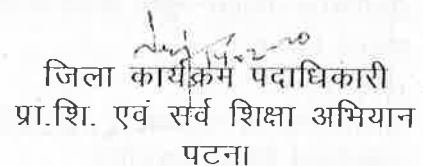 14-2-20
जिला कार्यक्रम पदाधिकारी
प्रा.शि. एवं सर्व शिक्षा अभियान
पटना